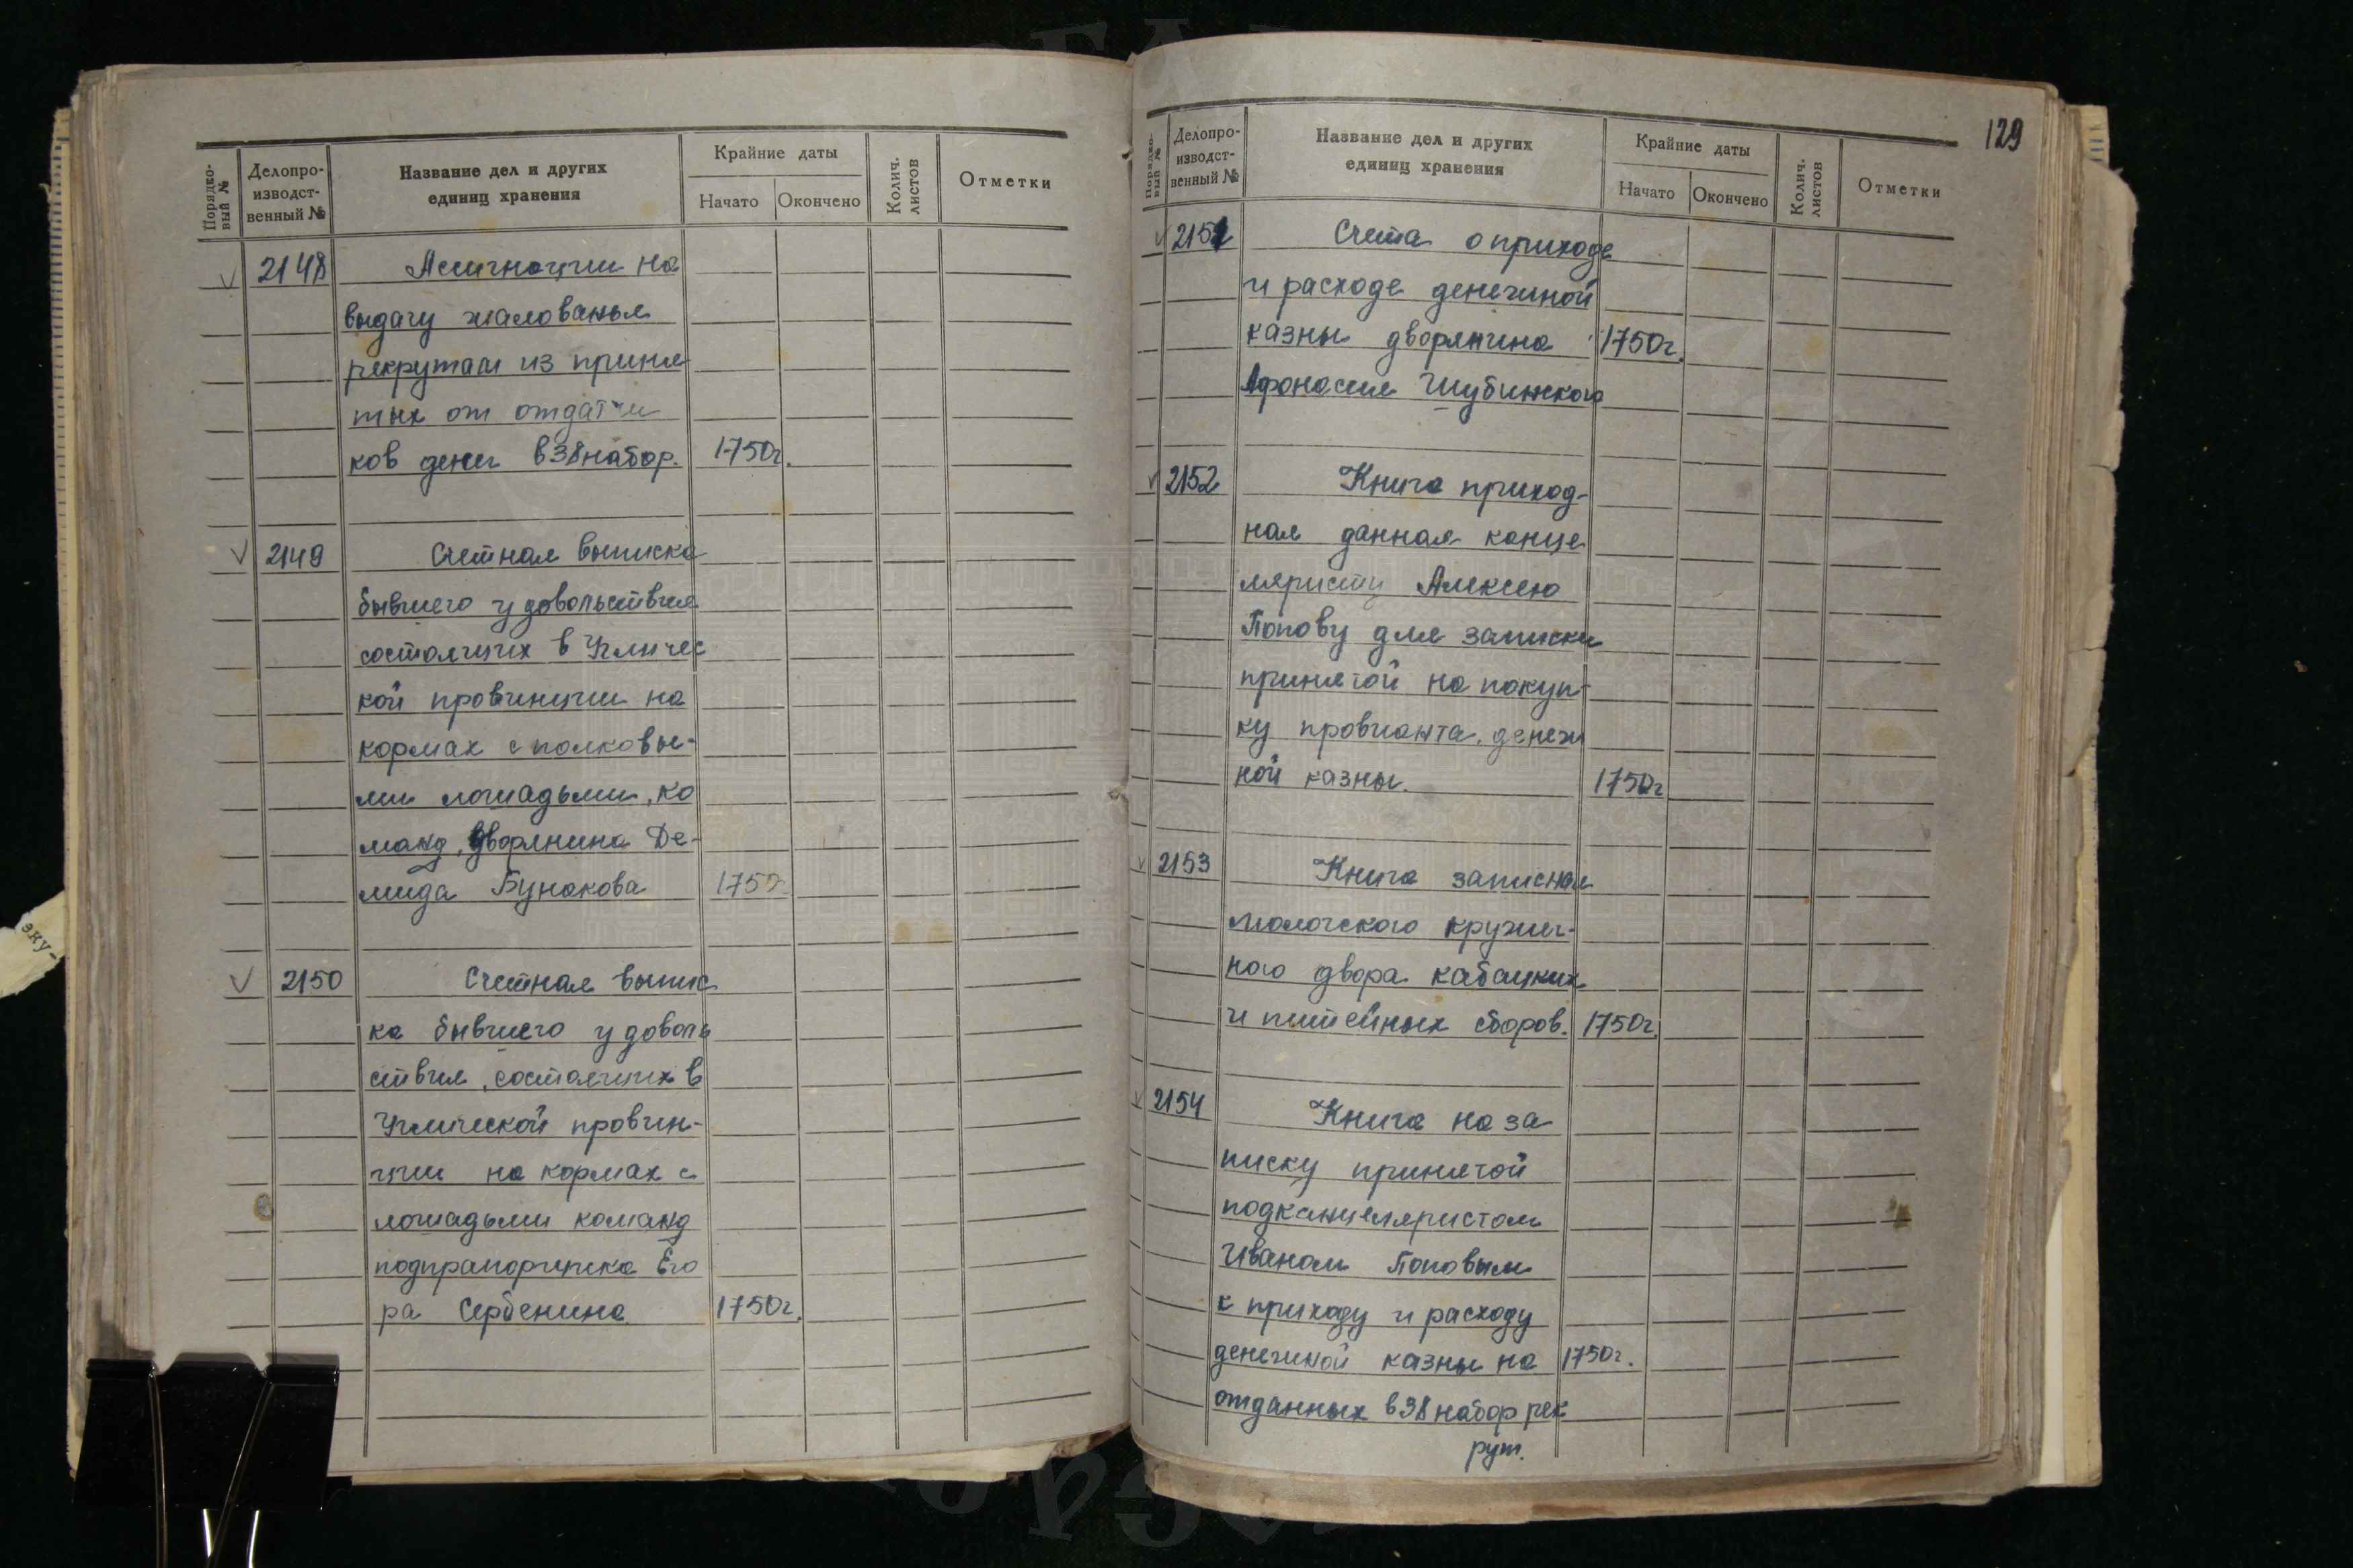 Порядко-
вый №
Делопро-
изводст-
венный №
Название дел и других
единиц хранения
Крайние даты
Начато
Окончено
Колич.
листов
Отметки
2148
Ассигнации на
выдачу жалованья
рекрутам из приня
тых от отдатчи
ков денег в 38 набор.
1750г.
2149
Счетная выписка
бывшего удовольствия
состоящих в Угличес
кой провинции на
кормах с полковы-
ми лошадьми, ко
манд. дворянина Де-
мида Бунакова
1750г
2150
Счетная выпис
ка бывшего удоволь
ствия, состоящих в
Углической провин-
ции на кормах с
лошадьми команд
подпрапорщика Его
ра Сербенина
1750г.
129
Порядко-
вый №
Делопро-
изводст-
венный №
Название дел и других
единиц хранения
Крайние даты
Начато
Окончено
Колич.
листов
Отметки
2151
Счета о приходе
и расходе денежной
казны дворянина
1750г.
Афонасия Шубинского
2152
Книга приход-
ная данная канце
ляристу Алексею
Попову для записки
принятой на покуп-
ку провианта, денеж
ной казны.
1750г
2153
Книга записная
молочского кружеч-
ного двора кабацких
и питейных сборов.
1750г.
2154
Книга на за
писку принятой
подканцеляристом
Иваном Поповым
к приходу и расходу
денежной казны на
1750г.
отданных в 38 набор рек
рут.
эку-